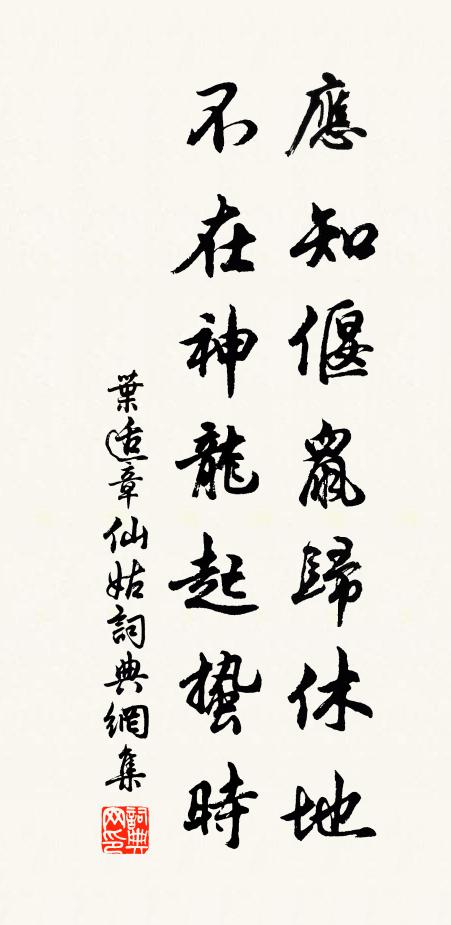 應知偃鼠歸休地
不在神龍起蟄時
葉适章仙姑詞典網集
詞典網印